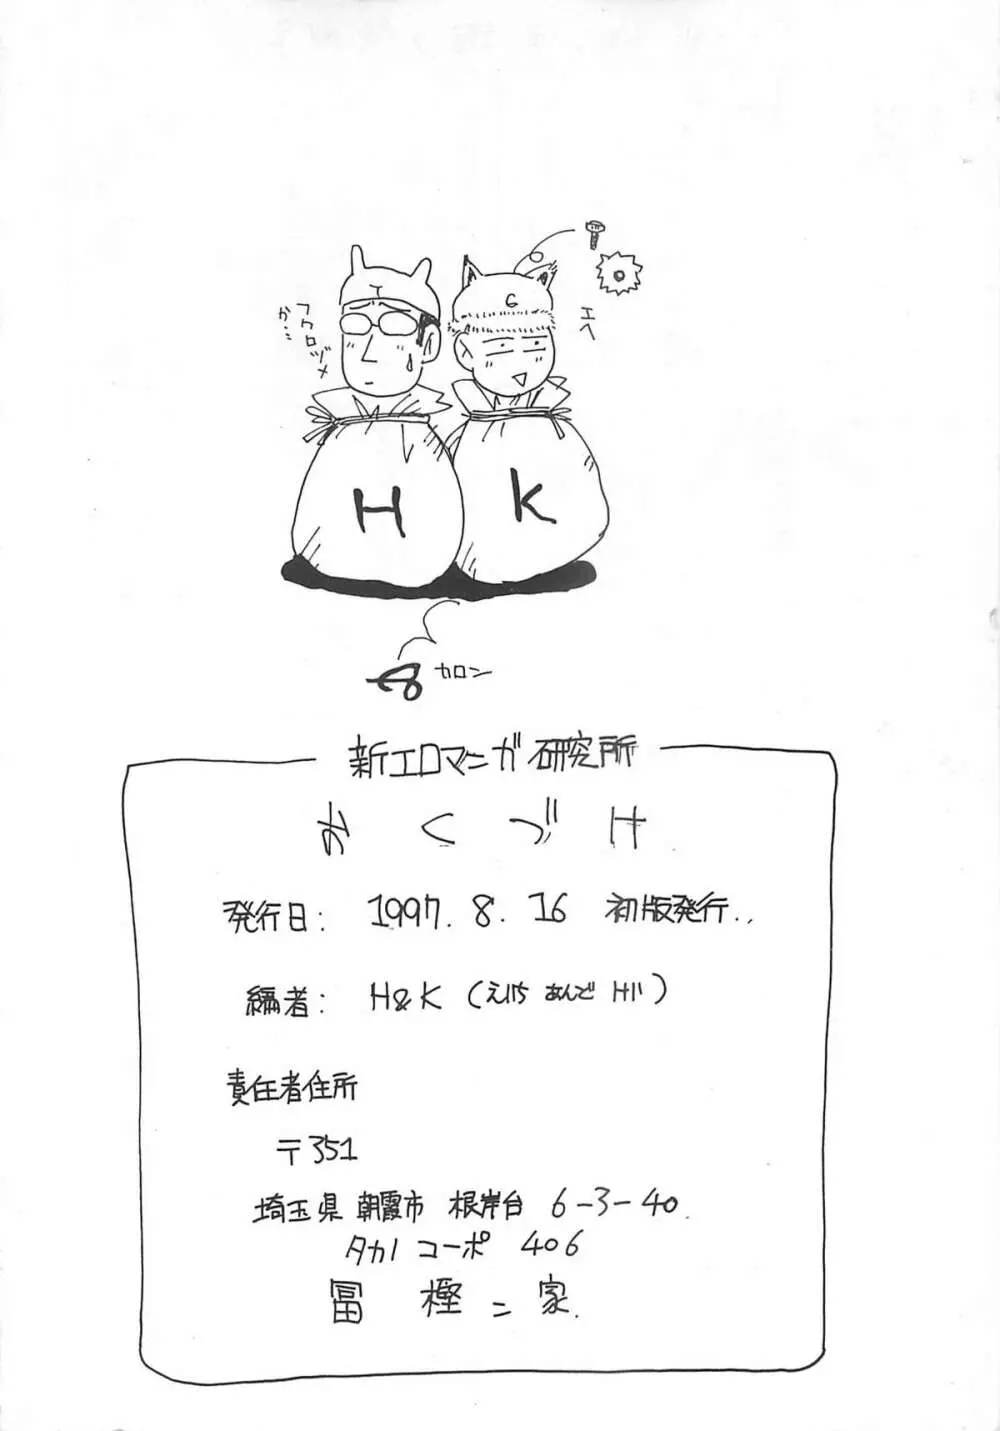 T
G
フクロヅメ
か…
エヘ
H
K
カロン
新エロマンガ研究所
おくづけ
発行日: 1997. 8. 16 初版発行..
編者: H&K (えいち あんど けい)
責任者住所
〒351
埼玉県 朝霞市 根岸台 6-3-40.
タカノ コーポ 406
冨樫二家.